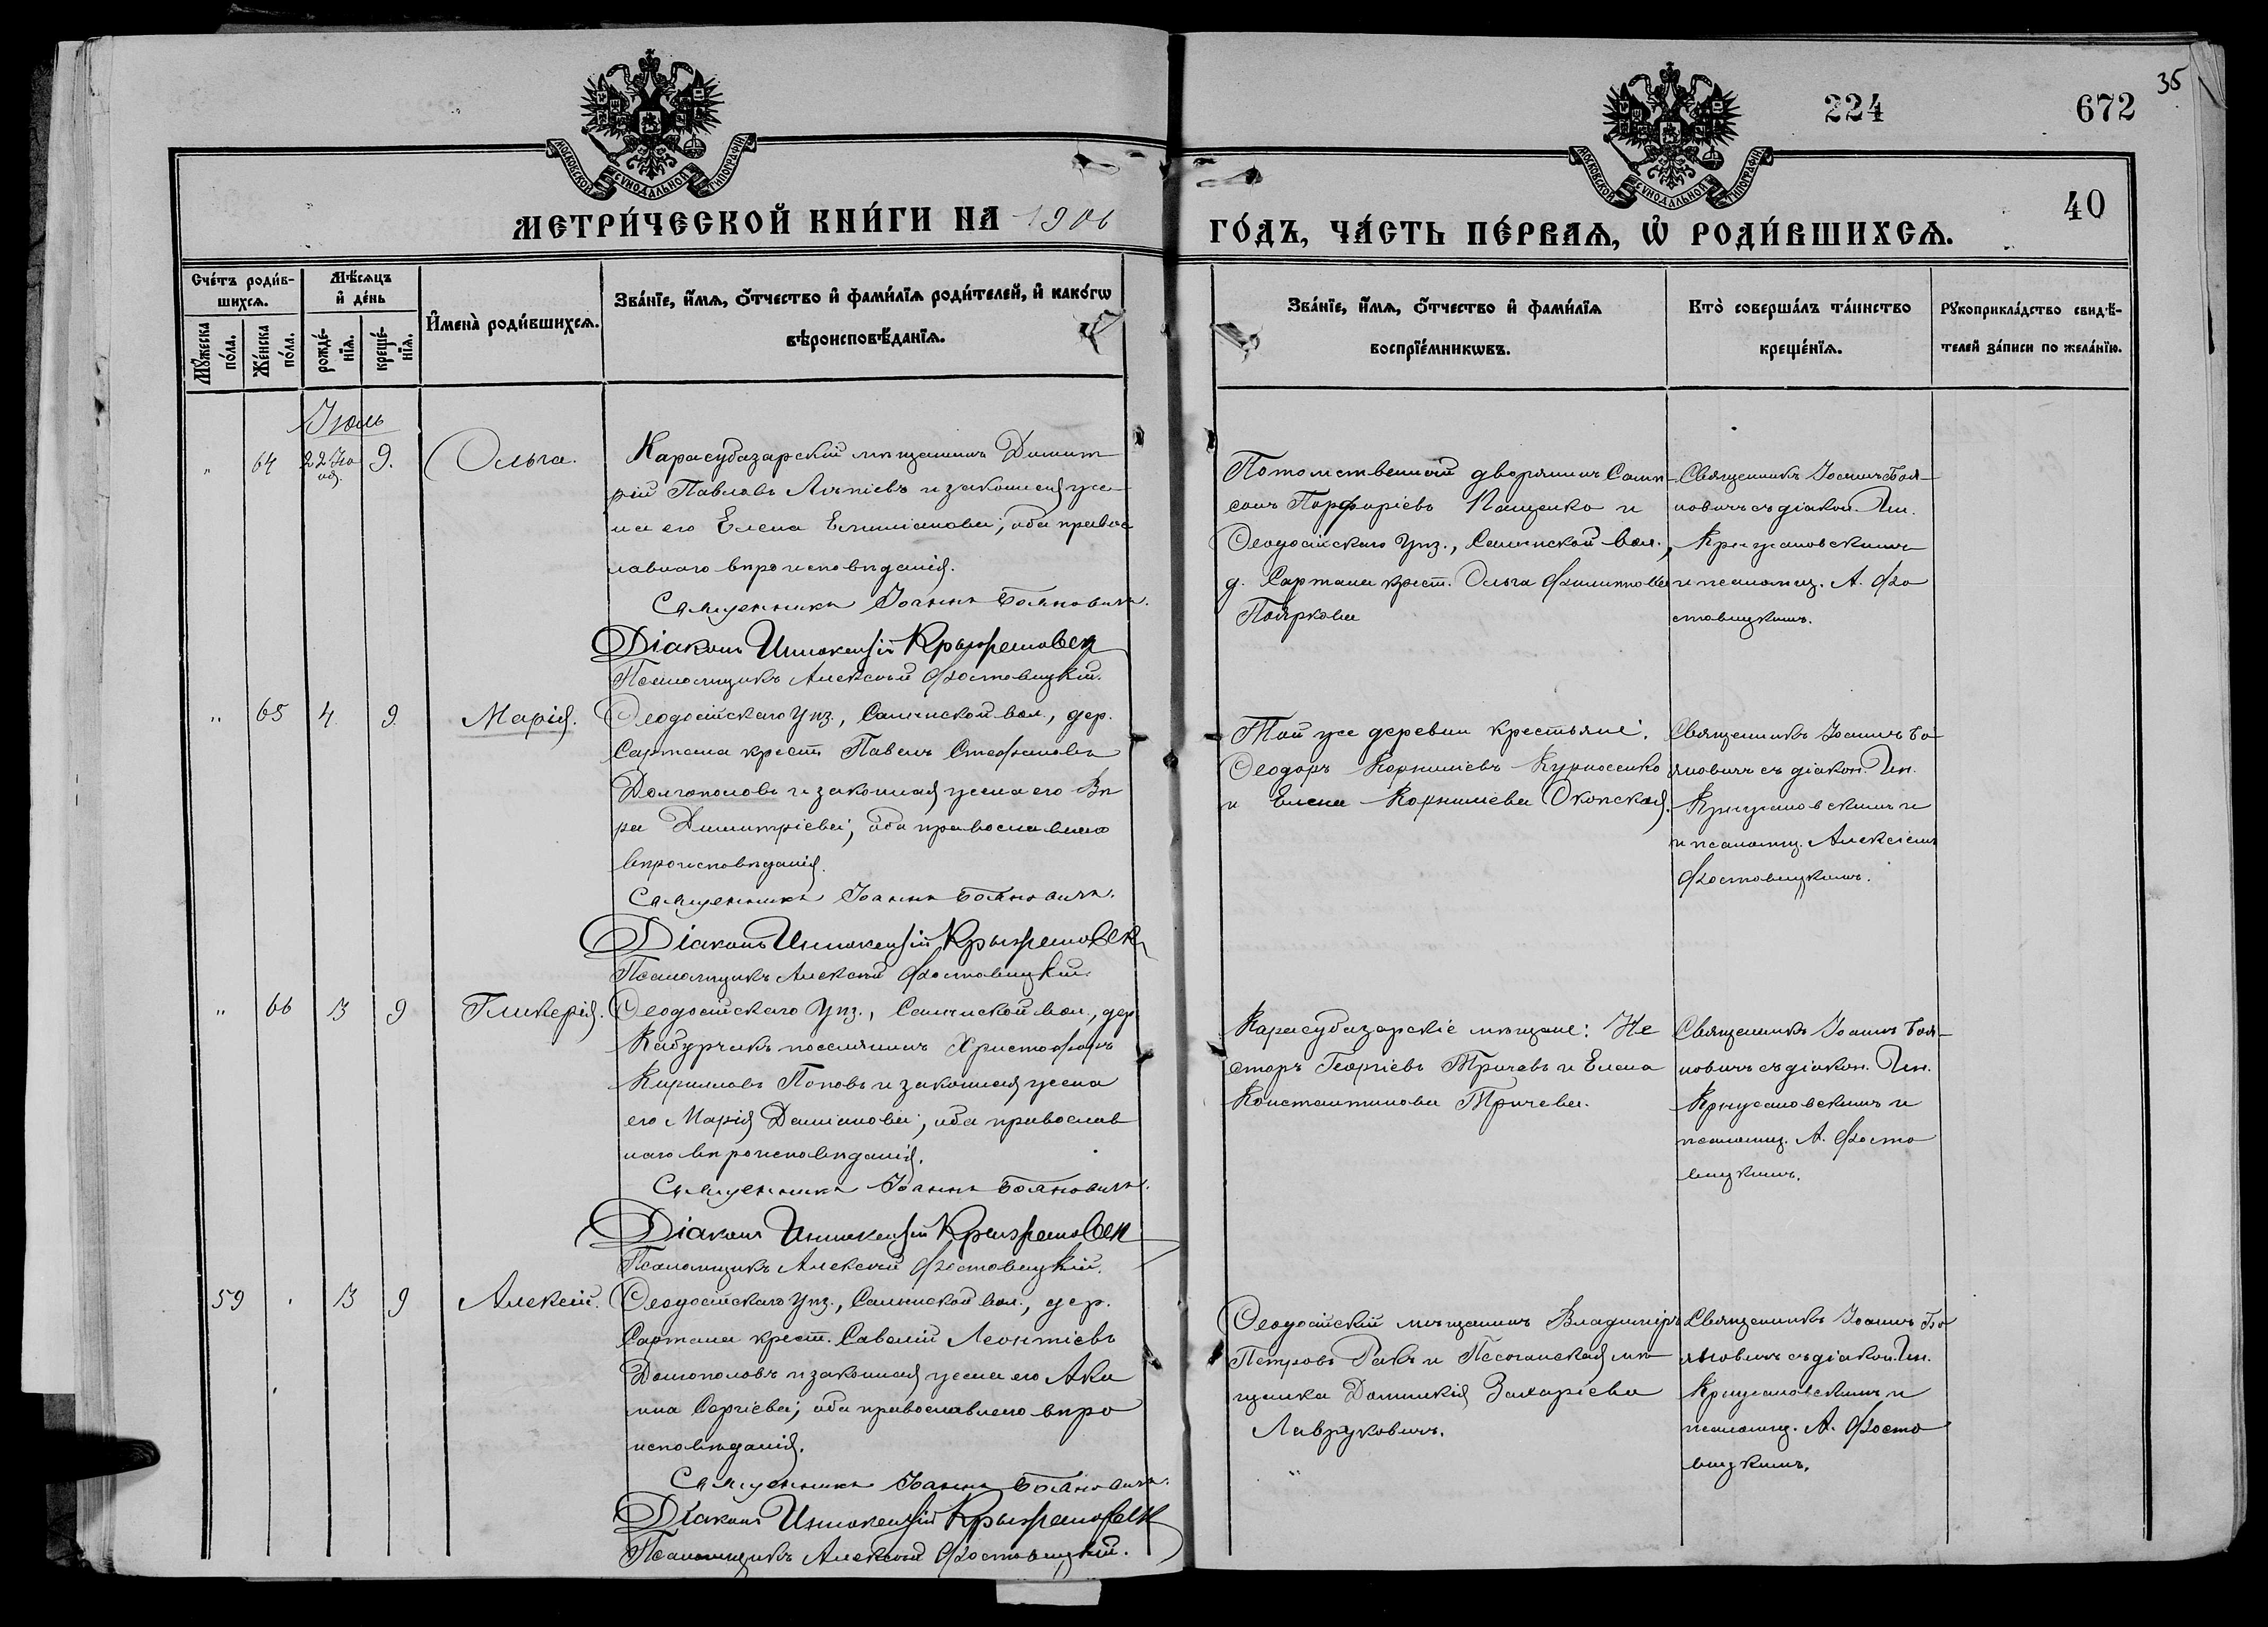 35
224
672
МОСКОВСКОЙ СѴНОДАЛЬНОЙ ТИПОГРАФІИ
МОСКОВСКОЙ СѴНОДАЛЬНОЙ ТИПОГРАФІИ
40
МЕТРИ́ЧЕСКОЙ КНИ́ГИ НА 1906
ГО́ДЪ, ЧА́СТЬ ПЕ́РВАѦ, Ѡ҆ РОДИ́ВШИХСѦ.
Сче́тъ роди́в-
шихсѧ.
Мѣ́сѧцъ
и҆ де́нь
Мꙋ́жеска
по́ла.
Же́нска
по́ла.
рожде́-
нїѧ.
креще́-
нїѧ.
И҆мена̀ роди́вшихсѧ.
Зва́нїе, и҆́мѧ, ѻ҆́тчество и҆ фами́лїѧ роди́телей, и҆ како́гѡ
вѣроисповѣ́данїѧ.
Зва́нїе, и҆́мѧ, ѻ҆́тчество и҆ фами́лїѧ
воспрїе́мникѡвъ.
Кто̀ соверша́лъ та́инство
креще́нїѧ.
Рꙋкоприкла́дство свидѣ́-
телей за́писи по жела́нїю.
Іюль
" 64 22 Iю 9. Ольга.
Карасубазарскій мѣщанинъ Димит
рій Павловъ и законная же
на его Елена Емиліанова; оба правос
лавнаго вѣроисповѣданія.
Священникъ Іоаннъ Бояновичъ.
Діаконъ Иннокентій
Псаломщикъ Алексѣй Фостовицкій.
Потомственный дворянинъ Самп-
сонъ Порфиріевъ Пащенко и
Ѳеодосійскаго уѣз., Салынской вол.,
д. Сартана крест. Ольга Филиппова
Пояркова
Священникъ Іоаннъ Боя-
новичъ съ діакон. Ин.
Крыжановскимъ
и псаломщ. А. Фо
стовицкимъ.
" 65 4 9 Марія.
Ѳеодосійскаго уѣз., Салынской вол., дер.
Сартана крест. Павелъ Стефановъ
Долгополовъ и законная жена его Вѣ
ра Димитріева; оба православнаго
вѣроисповѣданія.
Священникъ Іоаннъ Бояновичъ.
Діаконъ Иннокентій
Псаломщикъ Алексѣй Фостовицкій.
Той же деревни крестьяне:
Ѳеодоръ Корниліевъ Курносенко
и Елена Корниліева Окопская.
Священникъ Іоаннъ Бо
яновичъ съ діакон. Ин.
Крыжановскимъ и
и псаломщ. Алексіемъ
Фостовицкимъ.
" 66 13 9 Гликерія.
Ѳеодосійскаго уѣз., Салынской вол., дер.
Кабурчикъ поселянинъ Христофоръ
Кирилловъ Поповъ и законная жена
его Марія Даміанова; оба православ
наго вѣроисповѣданія.
Священникъ Іоаннъ Бояновичъ.
Діаконъ Иннокентій
Псаломщикъ Алексѣй Фостовицкій.
Карасубазарскіе мѣщане: Не
сторъ Георгіевъ Тричевъ и Елена
Константинова Тричева.
Священникъ Іоаннъ Боя-
новичъ съ діакон. Ин.
Крыжановскимъ и
псаломщ. А. Фосто
вицкимъ.
59 " 13 9 Алексій.
Ѳеодосійскаго уѣз., Салынской вол., дер.
Сартана крест. Савелій Леонтіевъ
Долгополовъ и законная жена его Аки
лина Сергіева; оба православнаго вѣро
исповѣданія.
Священникъ Іоаннъ Бояновичъ.
Діаконъ Иннокентій
Псаломщикъ Алексѣй Фостовицкій.
Ѳеодосійскій мѣщанинъ Владиміръ
Петровъ Ракъ и Песочанская мѣ
щанка Домникія Захаріева
Лаврукевичъ.
Священникъ Іоаннъ Бо
яновичъ съ діакон. Ин.
Крыжановскимъ и
псаломщ. А. Фосто
вицкимъ.